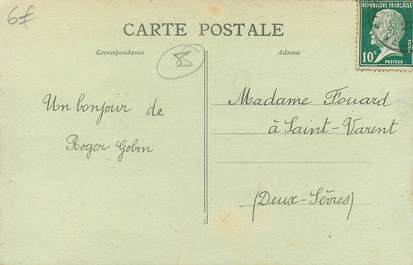 6f
CARTE POSTALE
Correspondance
Adresse
85
RÉPUBLIQUE FRANÇAISE
POSTES
10c
PASTEUR
Un bonjour de
Roger Gobin
Madame Fouard
à Saint-Varent
(Deux-Sèvres)